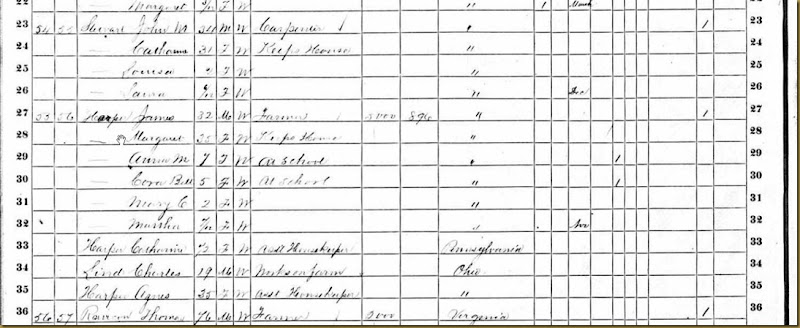 22 Margaret /12 F W " 1 March 22
23 34 35 Stewart John M 34 M W Carpenter " 1 23
24 — Catharine 31 F W Keeps House " 24
25 — Louisa 2 F W " 25
26 — Laura /12 F W " Dec 26
27 35 56 Harper James 32 M W Farmer 5000 896 " 1 27
28 — Margaret 35 F W Keeps House " 28
29 — Anna M 7 F W At School " 1 29
30 — Cora Bell 5 F W At School " 1 30
31 — Mary C 2 F W " 31
32 — Martha /12 F W " Nov 32
33 Harper Catharine 72 F W Asst Housekeeper Pennsylvania 33
34 Lind Charles 19 M W Works on farm Ohio 34
35 Harper Agnes 35 F W Asst Housekeeper " 35
36 56 57 Thomas 76 M W Farmer Virginia 1 36